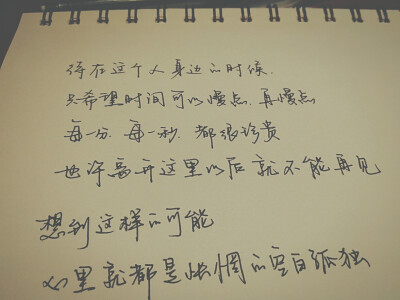 待在这个人身边的时候.
只希望时间可以慢点.再慢点
每一分.每一秒.都很珍贵
也许离开这里以后就不能再见
想到这样的可能
心里就都是怅惘的空白孤独